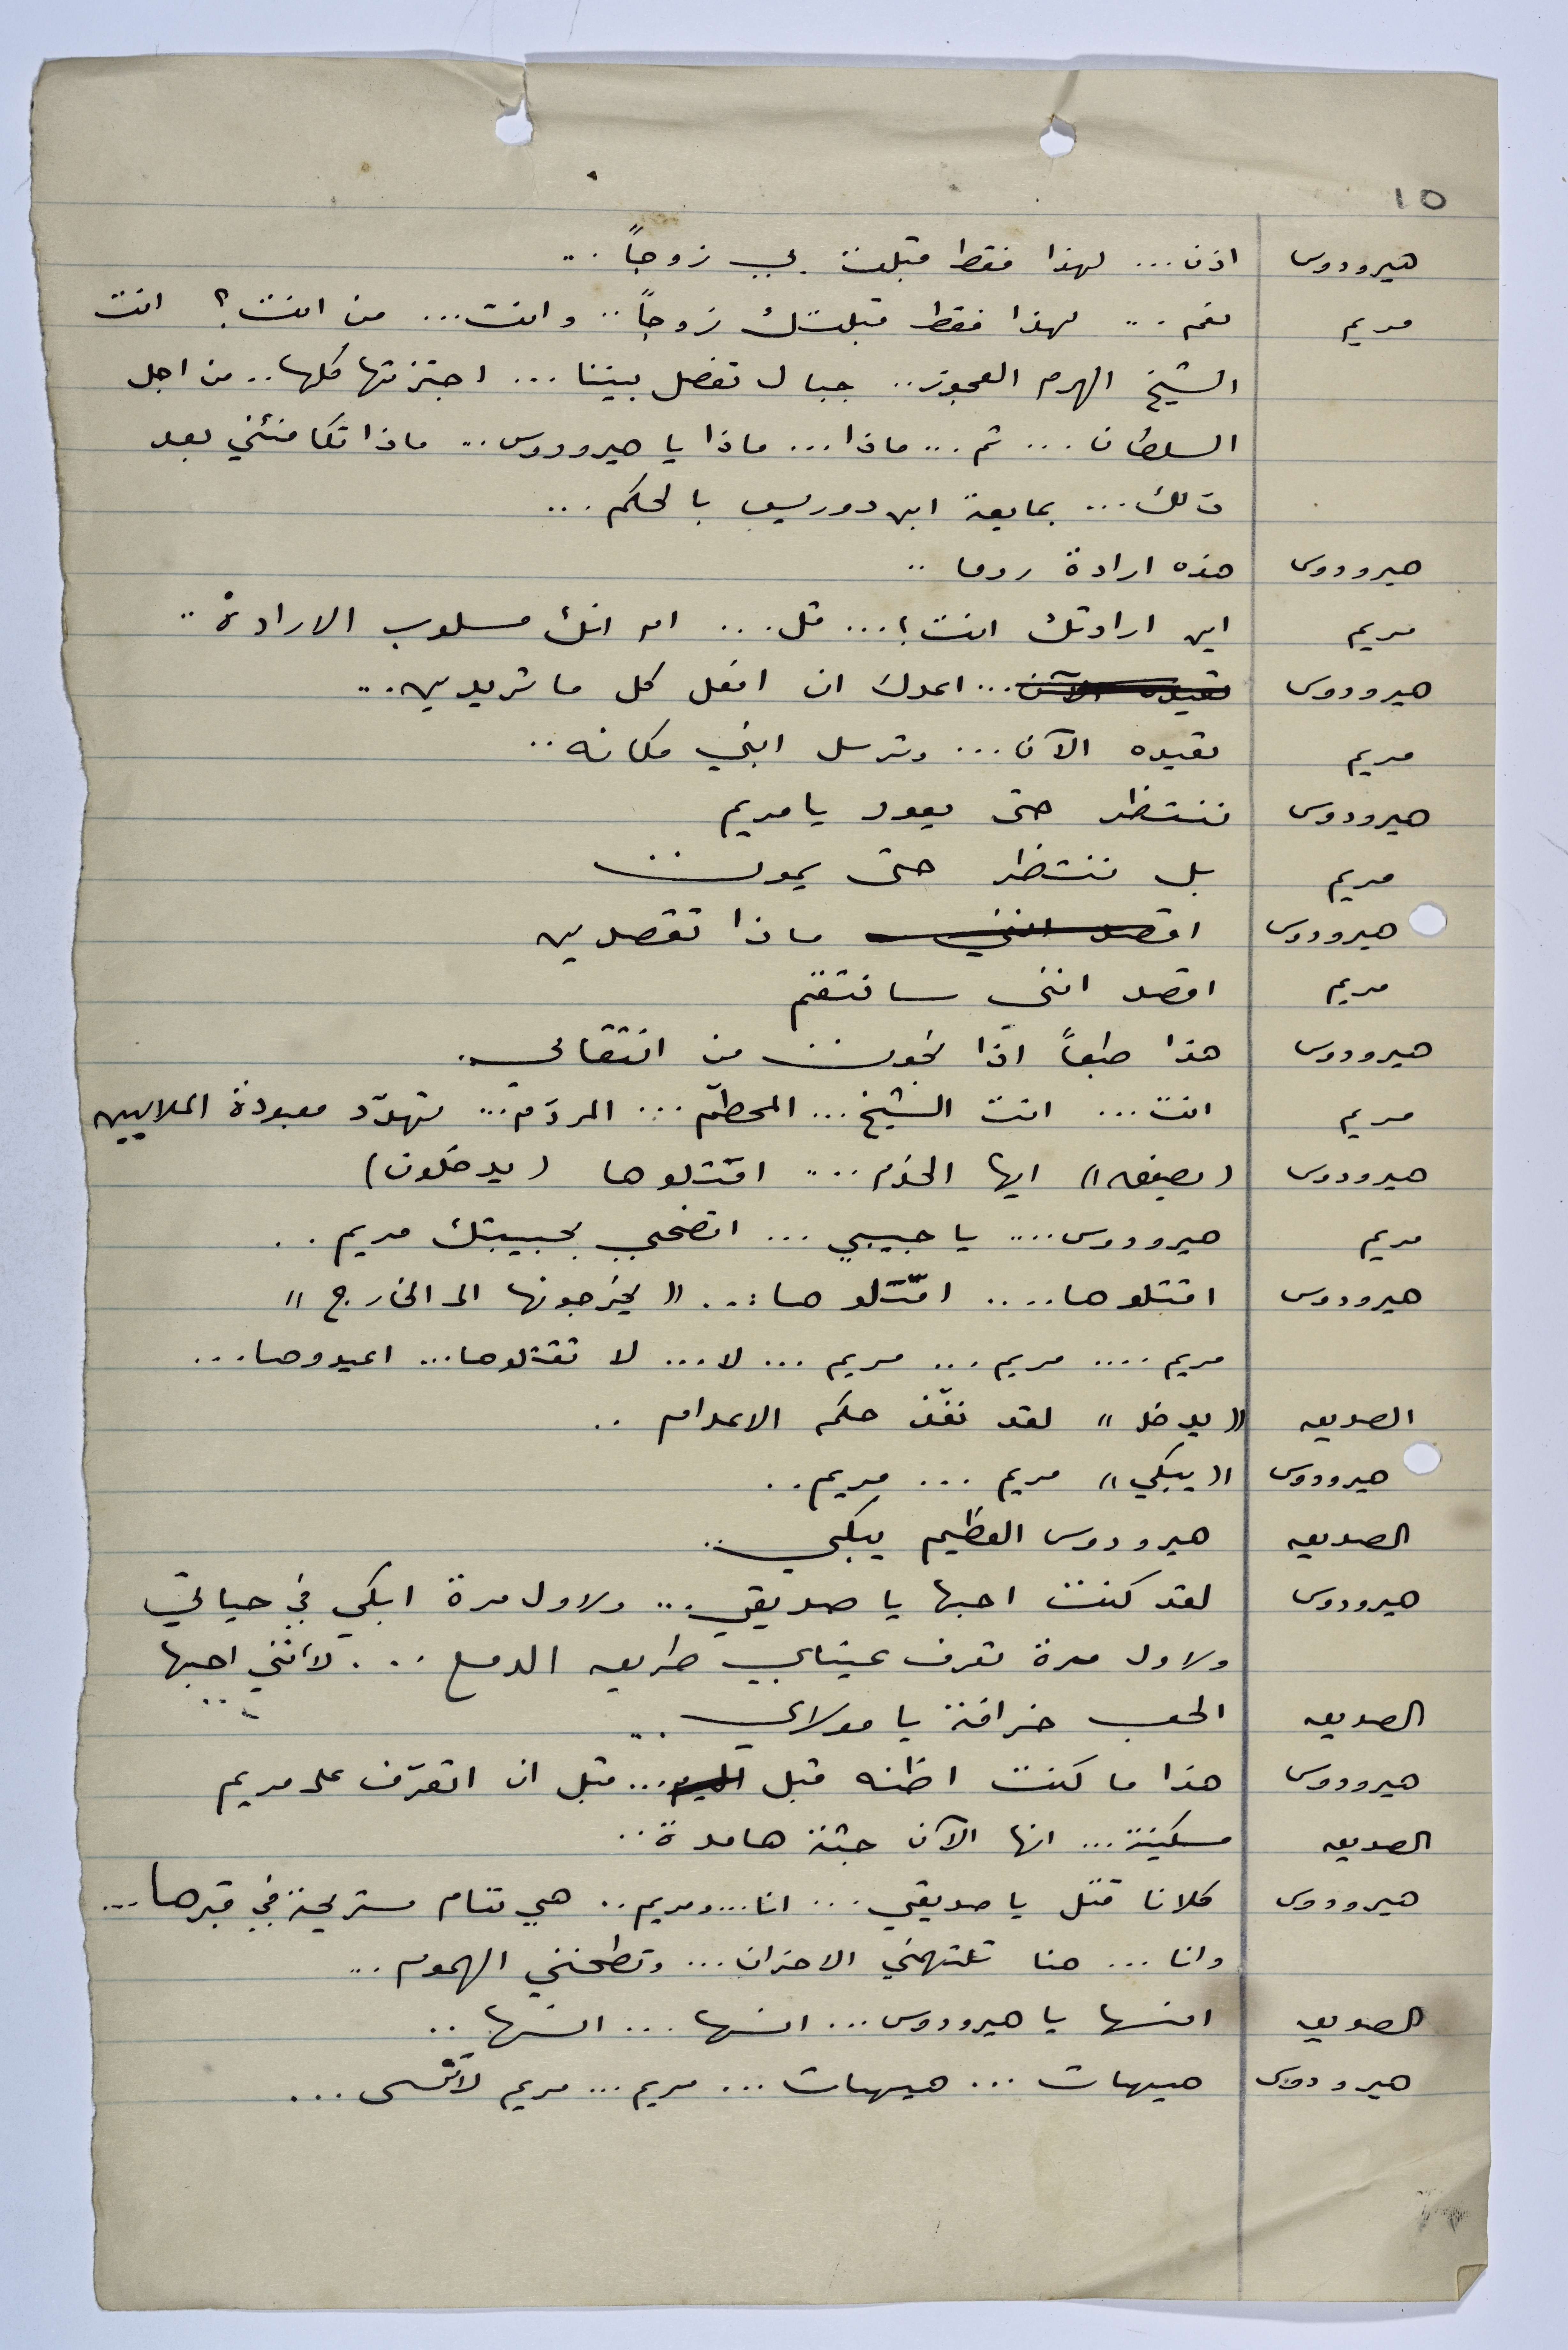 ١٥
هيرودوس اذن... لهذا فقط قبلت بي زوجاً...
مريم نعم... لهذا فقط قبلتك زوجاً.. وانت... من انت؟ انت
الشيخ الهرم العجوز.. جبال تفصل بيننا... اجتزتها كلها.. من اجل
السلطان... ثم... ماذا... ماذا يا هيرودوس... ماذا تكافئني بعد
ذلك... بمايعة ابن دوريس بالحكم...
هيرودوس هذه ارادة روما..
مريم اين ارادتك انت؟... قل... ام انك مسلوب الارادة..
هيرودوس تعيده الآن... اعدك ان افعل كل ما تريدين...
مريم تعيده الآن... وترسل ابني مكانه..
هيرودوس ننتظر حتى يعود يا مريم
مريم بل ننتظر حتى يموت
هيرودوس اقصد انني ماذا تقصدين
مريم اقصد انني سانتقم
هيرودوس هذا طبعاً اذا نجوت من انتقامي.
مريم انت... انت الشيخ... المحطّم... المردّم... تهدّد معبودة الملايين
هيرودوس (يصفق) ايها الخدم.... اقتلوها (يدخلون)
مريم هيرودوس.... يا حبيبي... اتضحي بحبيبتك مريم..
هيرودوس اقتلوها.... اقتلوها... "يخرجونها الى الخارج"
مريم.... مريم... مريم... لا... لا تقتلوها... اعيدوها...
الصديق "يدخل" لقد نفّذ حكم الاعدام..
هيرودوس "يبكي" مريم... مريم..
الصديق هيرودوس العظيم يبكي..
هيرودوس لقد كنت احبها يا صديقي... ولاول مرة ابكي في حياتي
ولاول مرة تعرف عيناي طريق الدمع... لأنني احبها..
الصديق الحب خرافة يا مولاي...
هيرودوس هذا ما كنت اظنه قبل اليوم... قبل ان اتعرّف على مريم
الصديق مسكينة... انها الآن جثة هامدة..
هيرودوس كلانا قتل يا صديقي... انا... ومريم.. هي تنام مستريحة في قبرها...
وانا... هنا تلتهمني الاحزان... وتطحنني الهموم...
الصديق انسها يا هيرودوس... انسها... انسها..
هيرودوس هيهات... هيهات... مريم... مريم لا تُنسى...